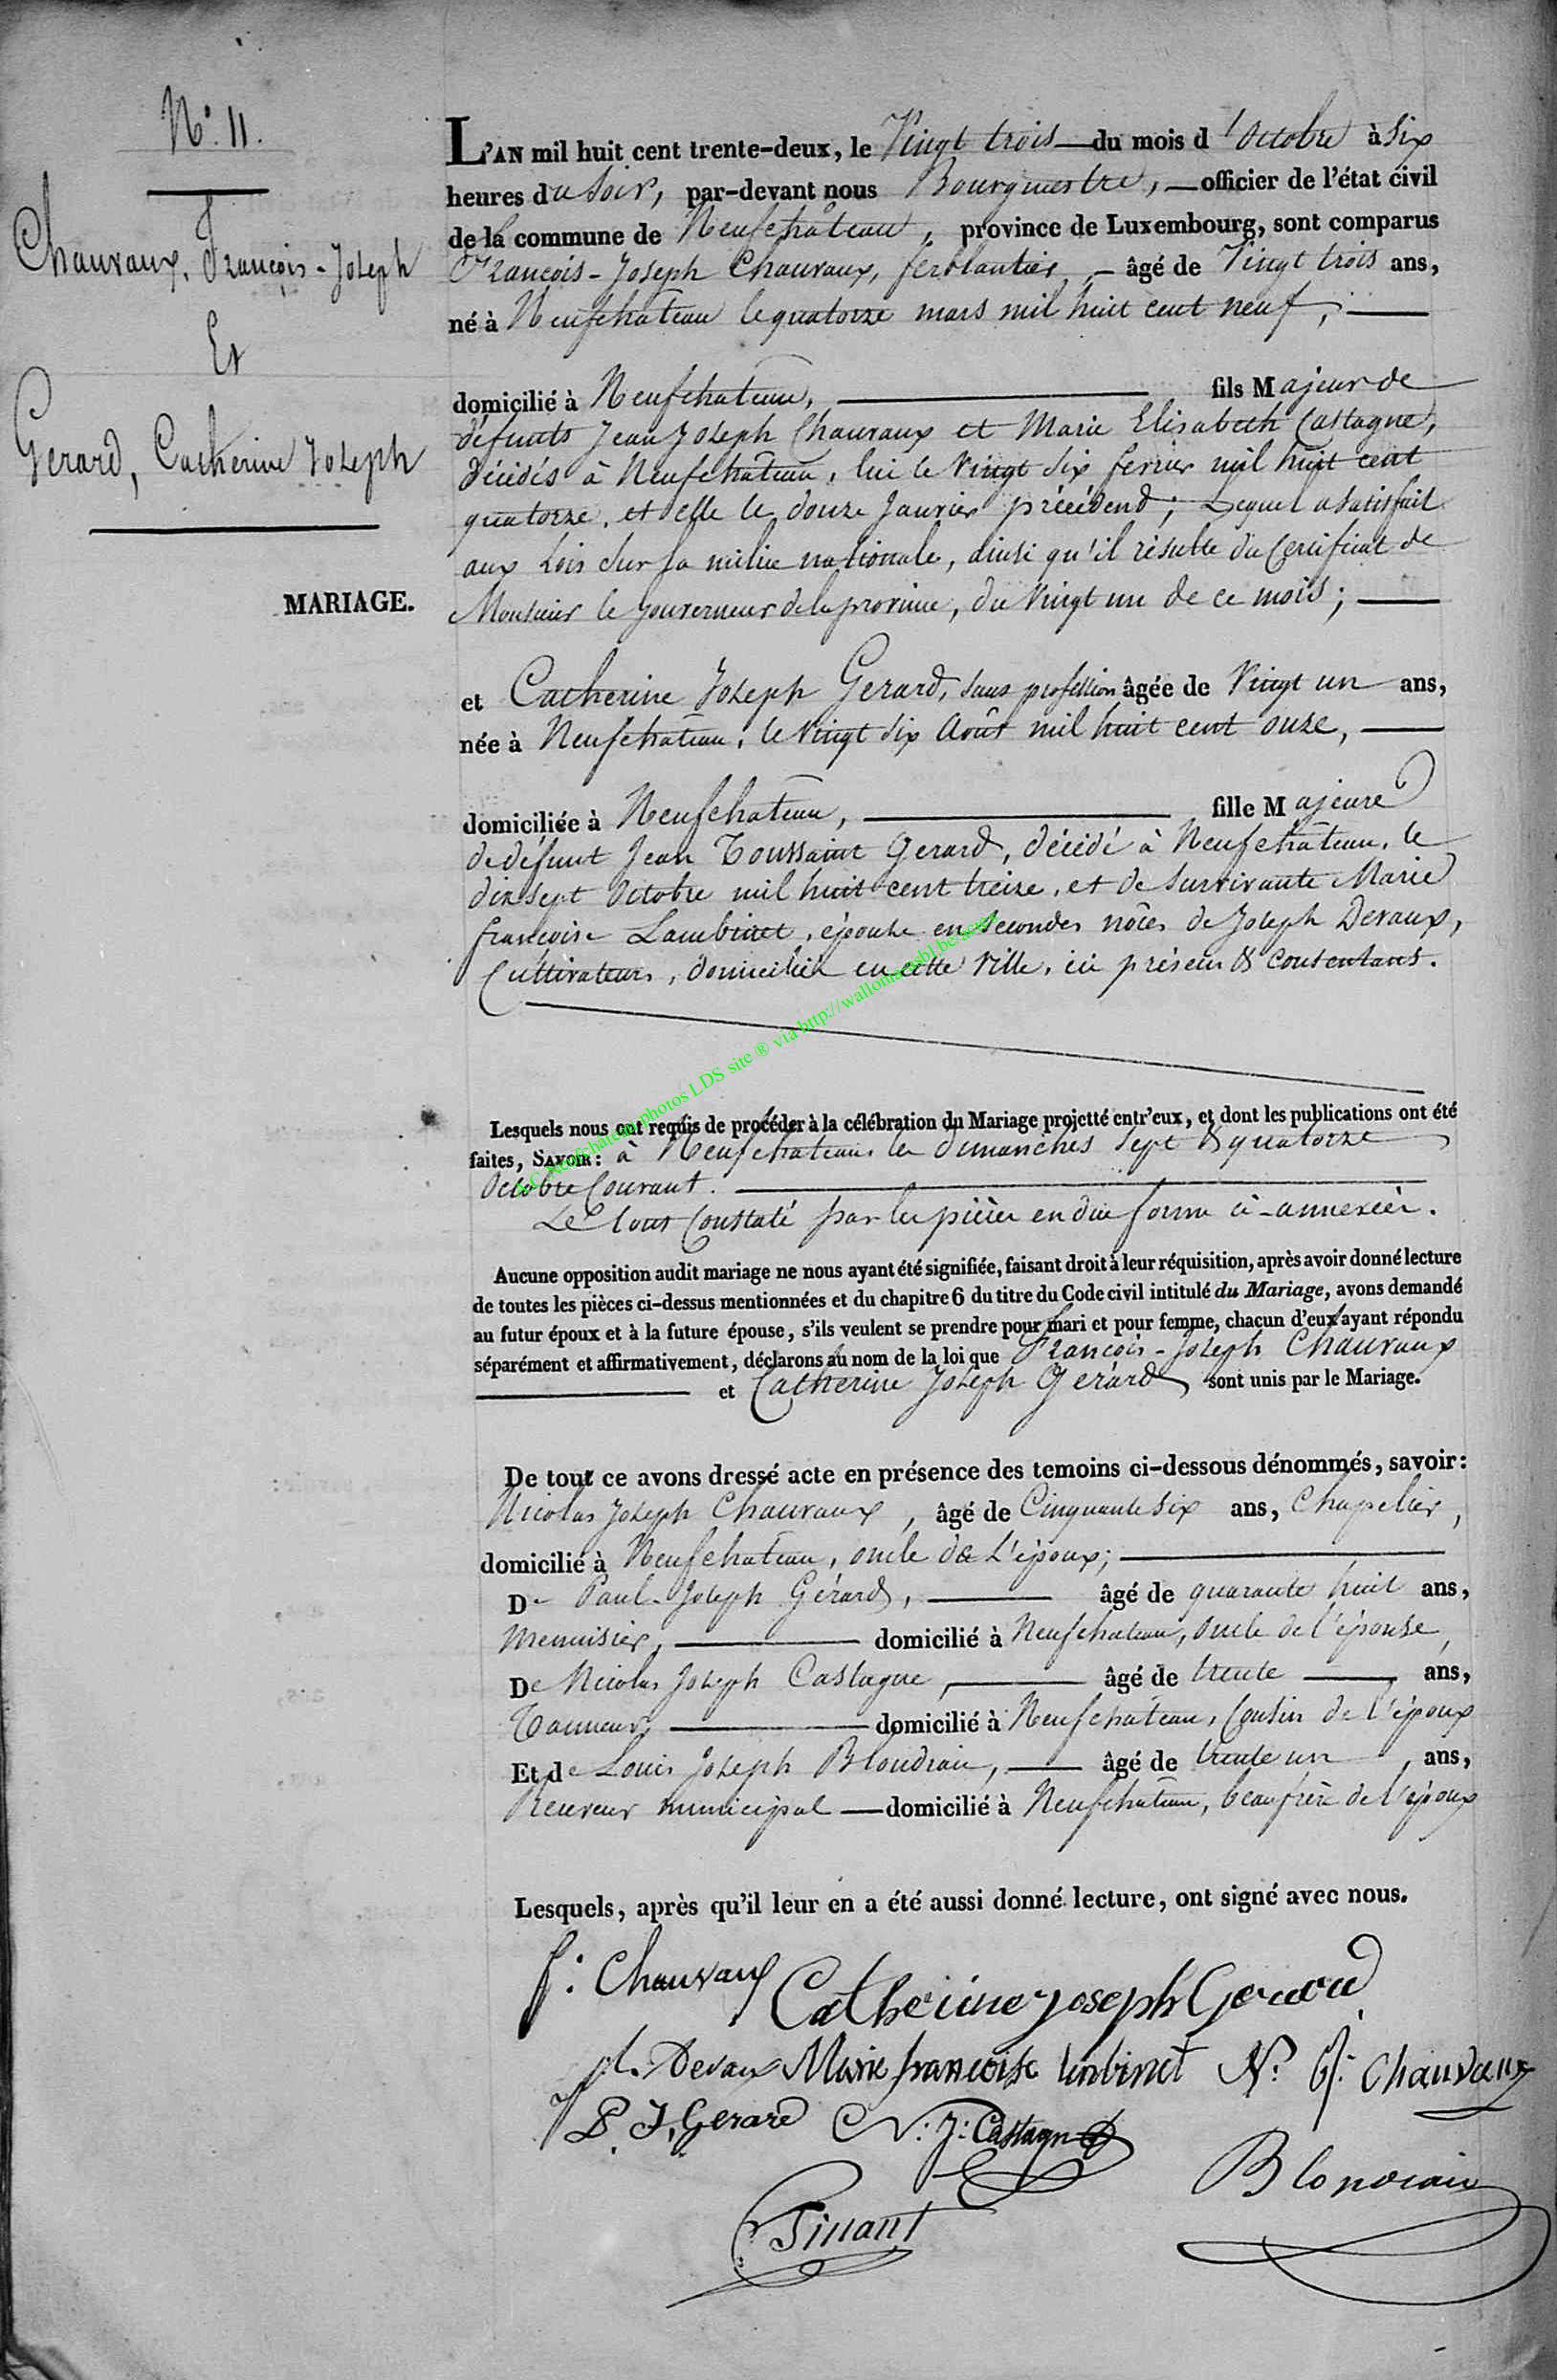 N.º 11.
Chauvaux, François-Joseph
Et
Gerard, Catherine Joseph
MARIAGE.
L'AN mil huit cent trente-deux, le Vingt trois du mois d'Octobre à Six
heures du Soir, par-devant nous Bourgmestre, officier de l'état civil
de la commune de Neufchâteau, province de Luxembourg, sont comparus
François-Joseph Chauvaux, ferblantier, âgé de Vingt trois ans,
né à Neufchâteau le quatorze mars mil huit cent neuf,
domicilié à Neufchateau, fils Majeur de
défunts Jean Joseph Chauvaux et Marie Elisabeth Castagne,
décédés à Neufchateau, lui le Vingt Six fevrier mil huit cent
quatorze, et elle le douze Janvier précédend; Lequel a satisfait
aux Lois Sur la milice nationale, ainsi qu'il résulte du Certificat de
Monsieur le Gouverneur de la province, du Vingt un de ce mois;
et Catherine Joseph Gerard, sans profession âgée de Vingt un ans,
née à Neufchâteau, le Vingt Six Août mil huit cent onze,
domiciliée à Neufchateau, fille Majeure
de défunt Jean Toussaint Gerard, décédé à Neufchâteau, le
dix sept Octobre mil huit cent treize, et de Survivante Marie
françoise Lambinet, épouse en Secondes nôces de Joseph Devaux,
Cultivateurs, domiciliés en cette Ville, ici présens & Consentants.
A.C. Neufchateau photos LDS site ® via http://wallonia.asbl.be
Lesquels nous ont requis de procéder à la célébration du Mariage projetté entr'eux, et dont les publications ont été
faites, SAVOIR: à Neufchateau les dimanches Sept & quatorze
Octobre Courant.
Le tout Constaté par les pièces en due forme ci-annexées.
Aucune opposition audit mariage ne nous ayant été signifiée, faisant droit à leur réquisition, après avoir donné lecture
de toutes les pièces ci-dessus mentionnées et du chapitre 6 du titre du Code civil intitulé du Mariage, avons demandé
au futur époux et à la future épouse, s'ils veulent se prendre pour mari et pour femme, chacun d'eux ayant répondu
séparément et affirmativement, déclarons au nom de la loi que François-Joseph Chauvaux
et Catherine Joseph Gérard sont unis par le Mariage.
De tout ce avons dressé acte en présence des temoins ci-dessous dénommés, savoir:
Nicolas Joseph Chauvaux, âgé de Cinquante Six ans, Chapelier,
domicilié à Neufchateau, oncle de L'époux;
De Paul-Joseph Gérard, âgé de quarante huit ans,
Menuisier, domicilié à Neufchateau, Oncle de l'épouse,
De Nicolas Joseph Castagne, âgé de trente ans,
Tanneur, domicilié à Neufchateau, Cousin de l'époux
Et de Louis Joseph Blondiau, âgé de trente un ans,
Receveur municipal domicilié à Neufchâteau, beaufrère de l'époux
Lesquels, après qu'il leur en a été aussi donné lecture, ont signé avec nous.
f: Chauvaux
Catherine Joseph Gerard
Devaux Marie francoise Lambinet N: J: Chauvaux
P. J. Gerard N: J: Castagne
Blondiau